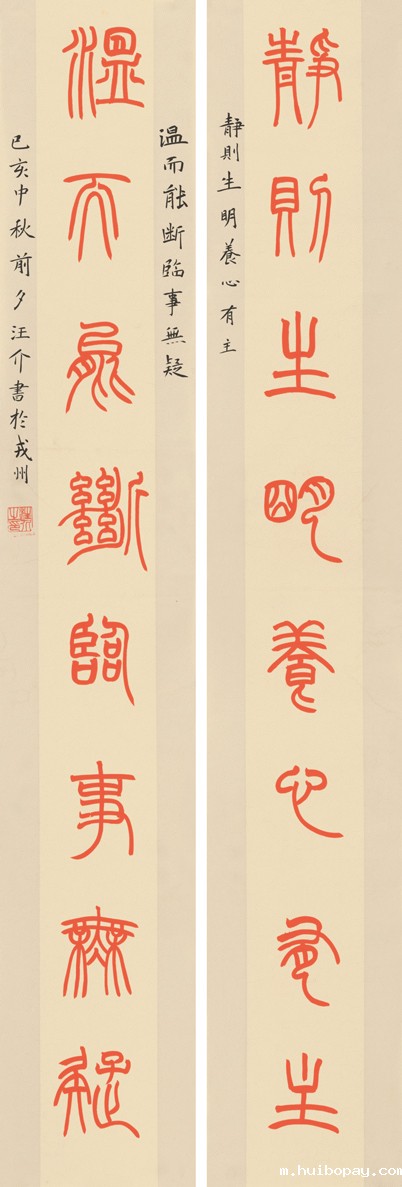 靜則生明養心有主
靜則生明養心有主
溫而能斷臨事無疑
温而能断臨事無疑
己亥中秋前夕汪介書於戎州
m.huibopay.com